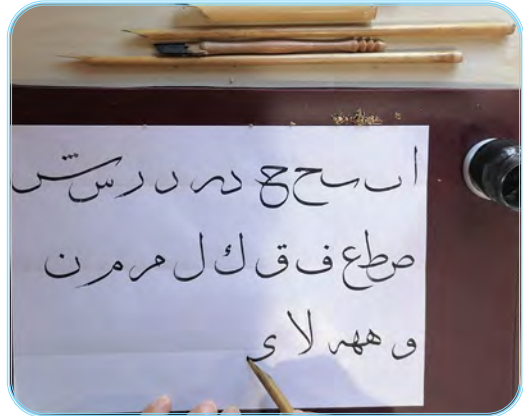 ا ں س ح ح د ر د ر س ش
ص ط ع ف ق ك ل م م ن
و هه ه لا ى